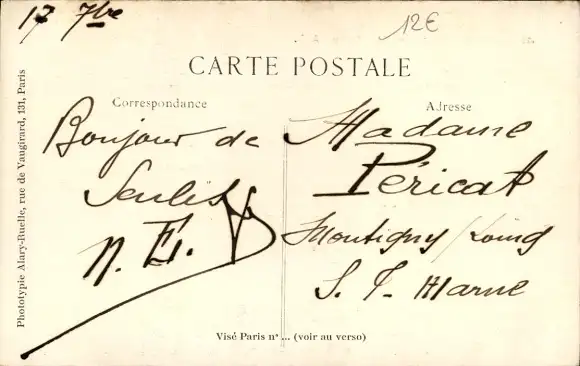 17 7bre
12€
CARTE POSTALE
Correspondance
Adresse
Bonjour de
Senlis
N. E.
Madame
Péricat
Montigny / Loing
S. & Marne
Phototypie Alary-Ruelle, rue de Vaugirard, 131, Paris
Visé Paris nº ... (voir au verso)